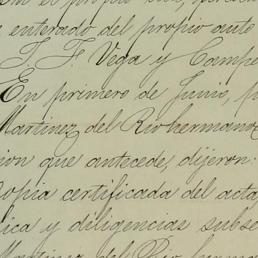 en el propio
enterado del propio auto
J. F. Vega y Campe
En primero de Junio, p
Martinez del Rio hermanos
ion que antecede, dijeron:
opia certificada del acta
ica y diligencias subse
Martinez del Rio herma